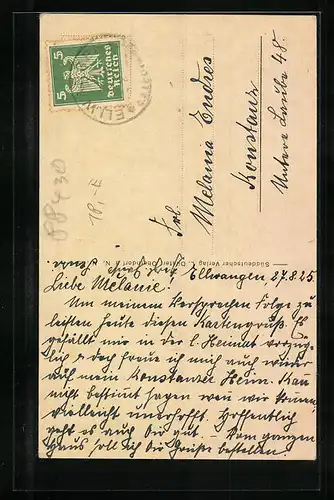 5
Deutsches
Reich
5
88430
18,-E
Frl.
Melanie Endres
Konstanz
Untere Laube 48.
Süddeutscher Verlag
Ellwangen, 27.8.25.
Liebe Melanie!
Um meinem Versprechen Folge zu
leisten heute diesen Kartengruß. Es
gefällt mir in der l. Heimat vorzüg-
lich & doch freue ich mich auch wieder
auf mein Konstanzer Heim. Kann
nicht bestimmt sagen wann wir kommen,
vielleicht unverhofft. Hoffentlich
geht es auch Dir gut. – Vom ganzen
Haus soll ich Dir Grüße bestellen.